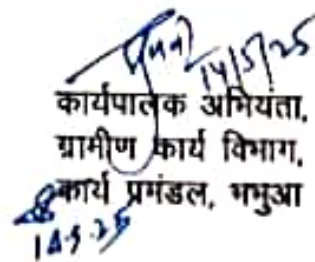 14/5/25
कार्यपालक अभियंता,
ग्रामीण कार्य विभाग,
कार्य प्रमंडल, भभुआ
14.5.25